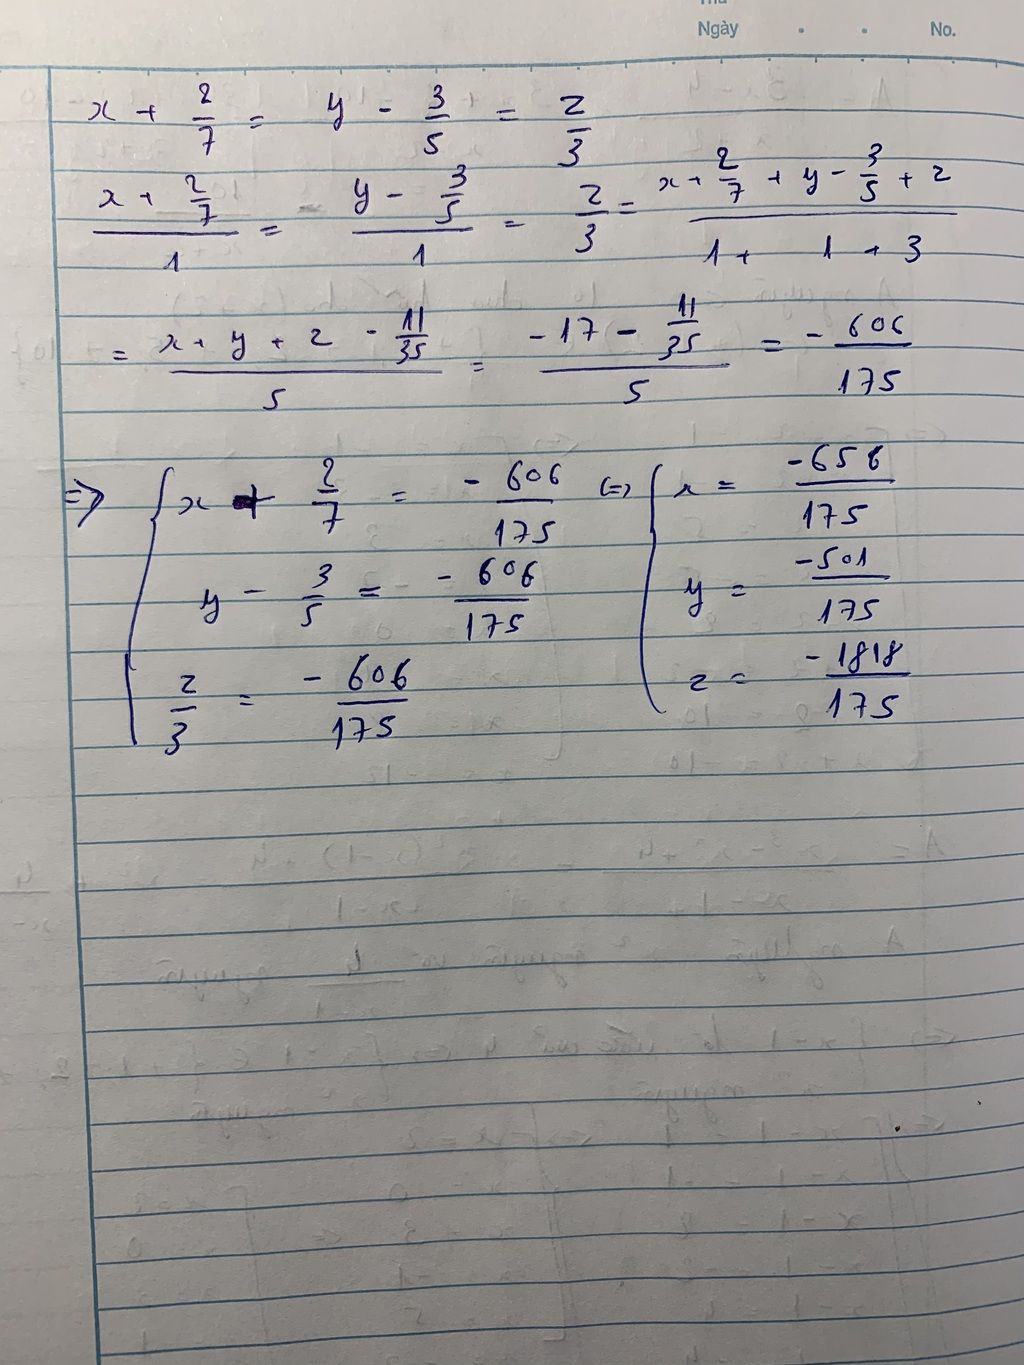 Thứ
Ngày . . No.
x + 2/7 = y - 3/5 = z/3
(x + 2/7)/1 = (y - 3/5)/1 = z/3 = (x + 2/7 + y - 3/5 + z)/(1 + 1 + 3)
= (x + y + z - 11/35)/5 = (-17 - 11/35)/5 = - 606/175
=> { x + 2/7 = - 606/175 <=> { x = -656/175
y - 3/5 = - 606/175 y = -501/175
z/3 = - 606/175 z = -1818/175